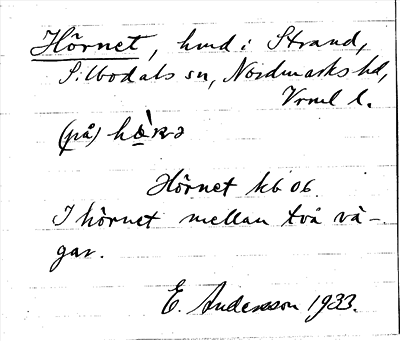 Hörnet, hmd i Strand,
Silbodals sn, Nordmarks hd,
Vrml l.
(på) hæ̀ṛnə
Hörnet kb 06.
I hörnet mellan två vä-
gar.
E. Andersson 1933.